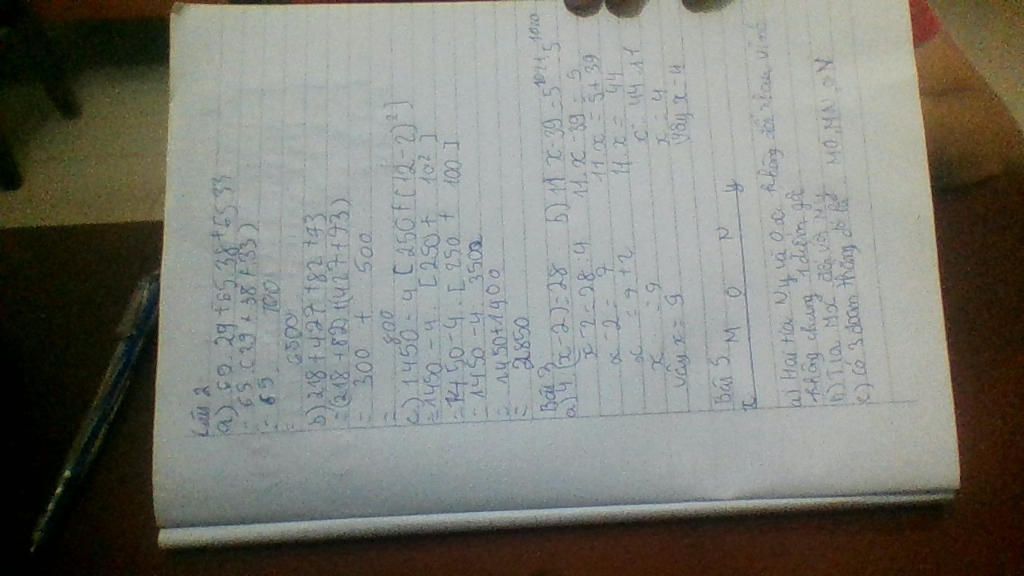 Câu 2
a) 65.29+65.38+65.33
= 65.(29+38+33)
= 65 . 100
= 6500
b) 218+427+82+73
= (218+82)+(427+73)
= 300 + 500
= 800
c) 1450-4.[250+(12-2)²]
= 1450-4.[250+ 10²]
= 1450-4.[250 + 100]
= 1450-4. 350
= 1450+1400
= 2850
Bài 3
a) 4(x-2)=28 b) 11x-39=5¹⁰¹¹:5¹⁰¹⁰
x-2=28:4 11.x-39=5
x-2=7 11x=5+39
x=7+2 11.x=44
x=9 x=44:11
Vậy x=9 x=4
Vậy x=4
Bài 5
x M O N y
a) Hai tia Ny và Ox không đối nhau vì nó
không chung 1 điểm gốc
b) Tia
c) Có 3 đoạn thẳng đó là MO,MN,ON